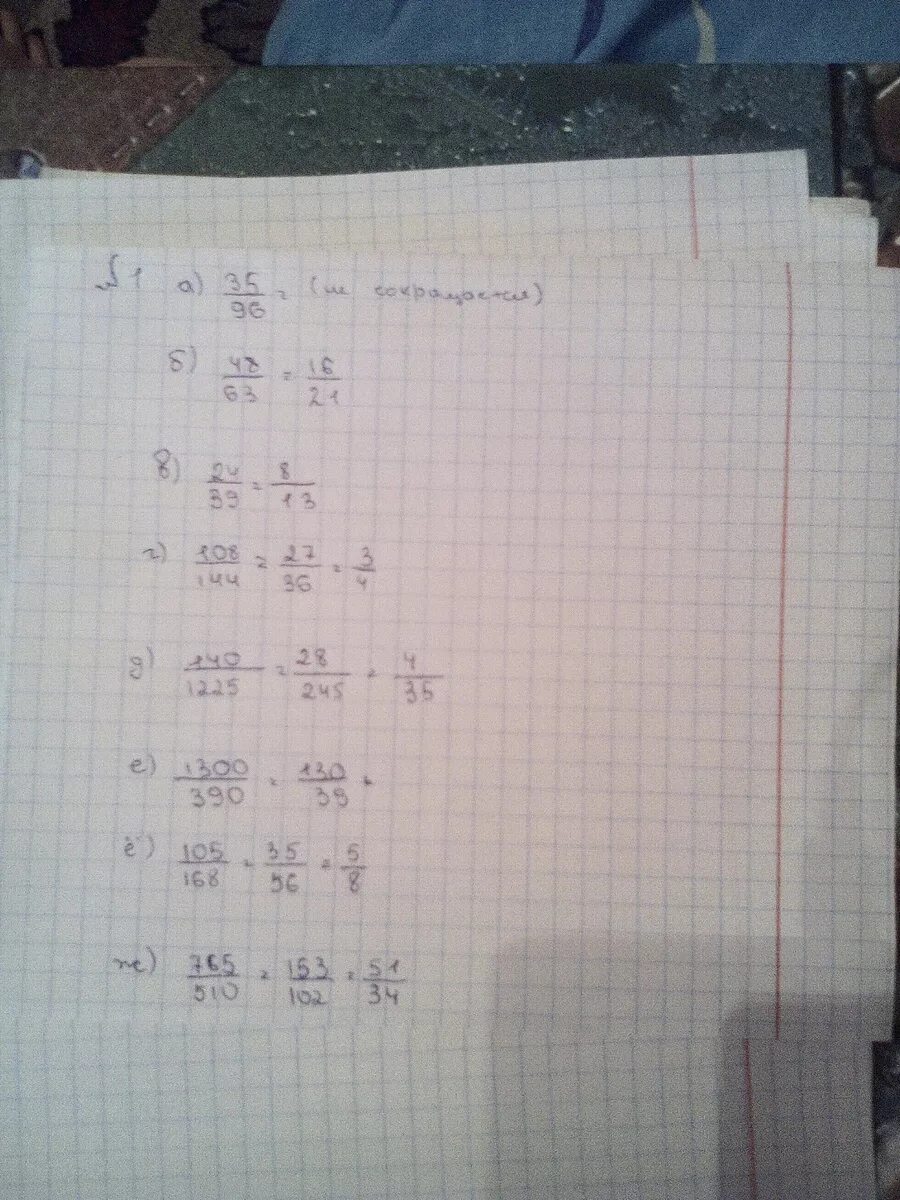 №1 а) 35/96 = (не сокращается)
б) 48/63 = 16/21
в) 24/39 = 8/13
г) 108/144 = 27/36 = 3/4
д) 140/1225 = 28/245 = 4/35
е) 1300/390 = 130/39 =
ё) 105/168 = 35/56 = 5/8
ж) 765/510 = 153/102 = 51/34